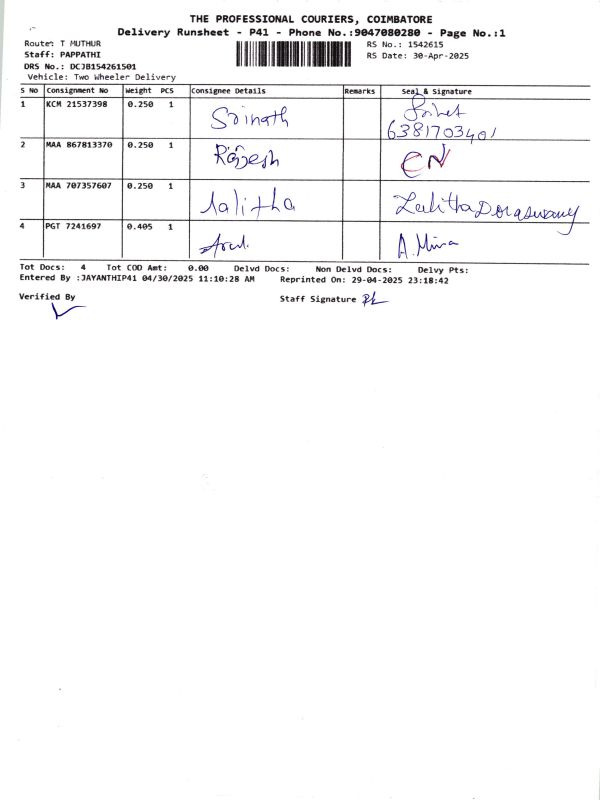 THE PROFESSIONAL COURIERS, COIMBATORE
Delivery Runsheet - P41 - Phone No.:9047080280 - Page No.:1
Route: T MUTHUR RS No.: 1542615
Staff: PAPPATHI RS Date: 30-Apr-2025
DRS No.: DCJB154261501
Vehicle: Two Wheeler Delivery
S No Consignment No Weight PCS Consignee Details Remarks Seal & Signature
1 KCM 21537398 0.250 1 Srinath
6381703401
2 MAA 867813370 0.250 1 Rajesh
3 MAA 707357607 0.250 1 Lalitha Lalitha Doraswamy
4 PGT 7241697 0.405 1 Arul. A. Mina
Tot Docs: 4 Tot COD Amt: 0.00 Delvd Docs: Non Delvd Docs: Delvy Pts:
Entered By :JAYANTHIP41 04/30/2025 11:10:28 AM Reprinted On: 29-04-2025 23:18:42
Verified By Staff Signature